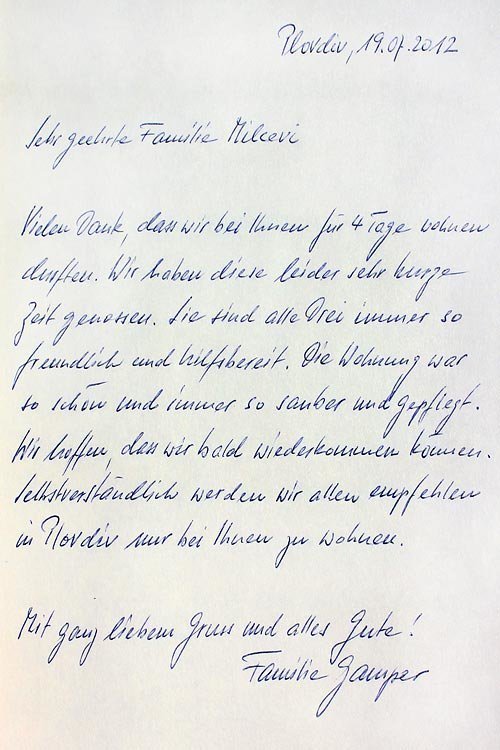 Plovdiv, 19.07.2012
Sehr geehrte Familie Milcevi
Vielen Dank, dass wir bei Ihnen für 4 Tage wohnen
durften. Wir haben diese leider sehr kurze
Zeit genossen. Sie sind alle Drei immer so
freundlich und hilfsbereit. Die Wohnung war
so schön und immer so sauber und gepflegt.
Wir hoffen, dass wir bald wiederkommen können.
Selbstverständlich werden wir allen empfehlen
in Plovdiv nur bei Ihnen zu wohnen.
Mit ganz liebem Gruss und alles Gute!
Familie Gamper